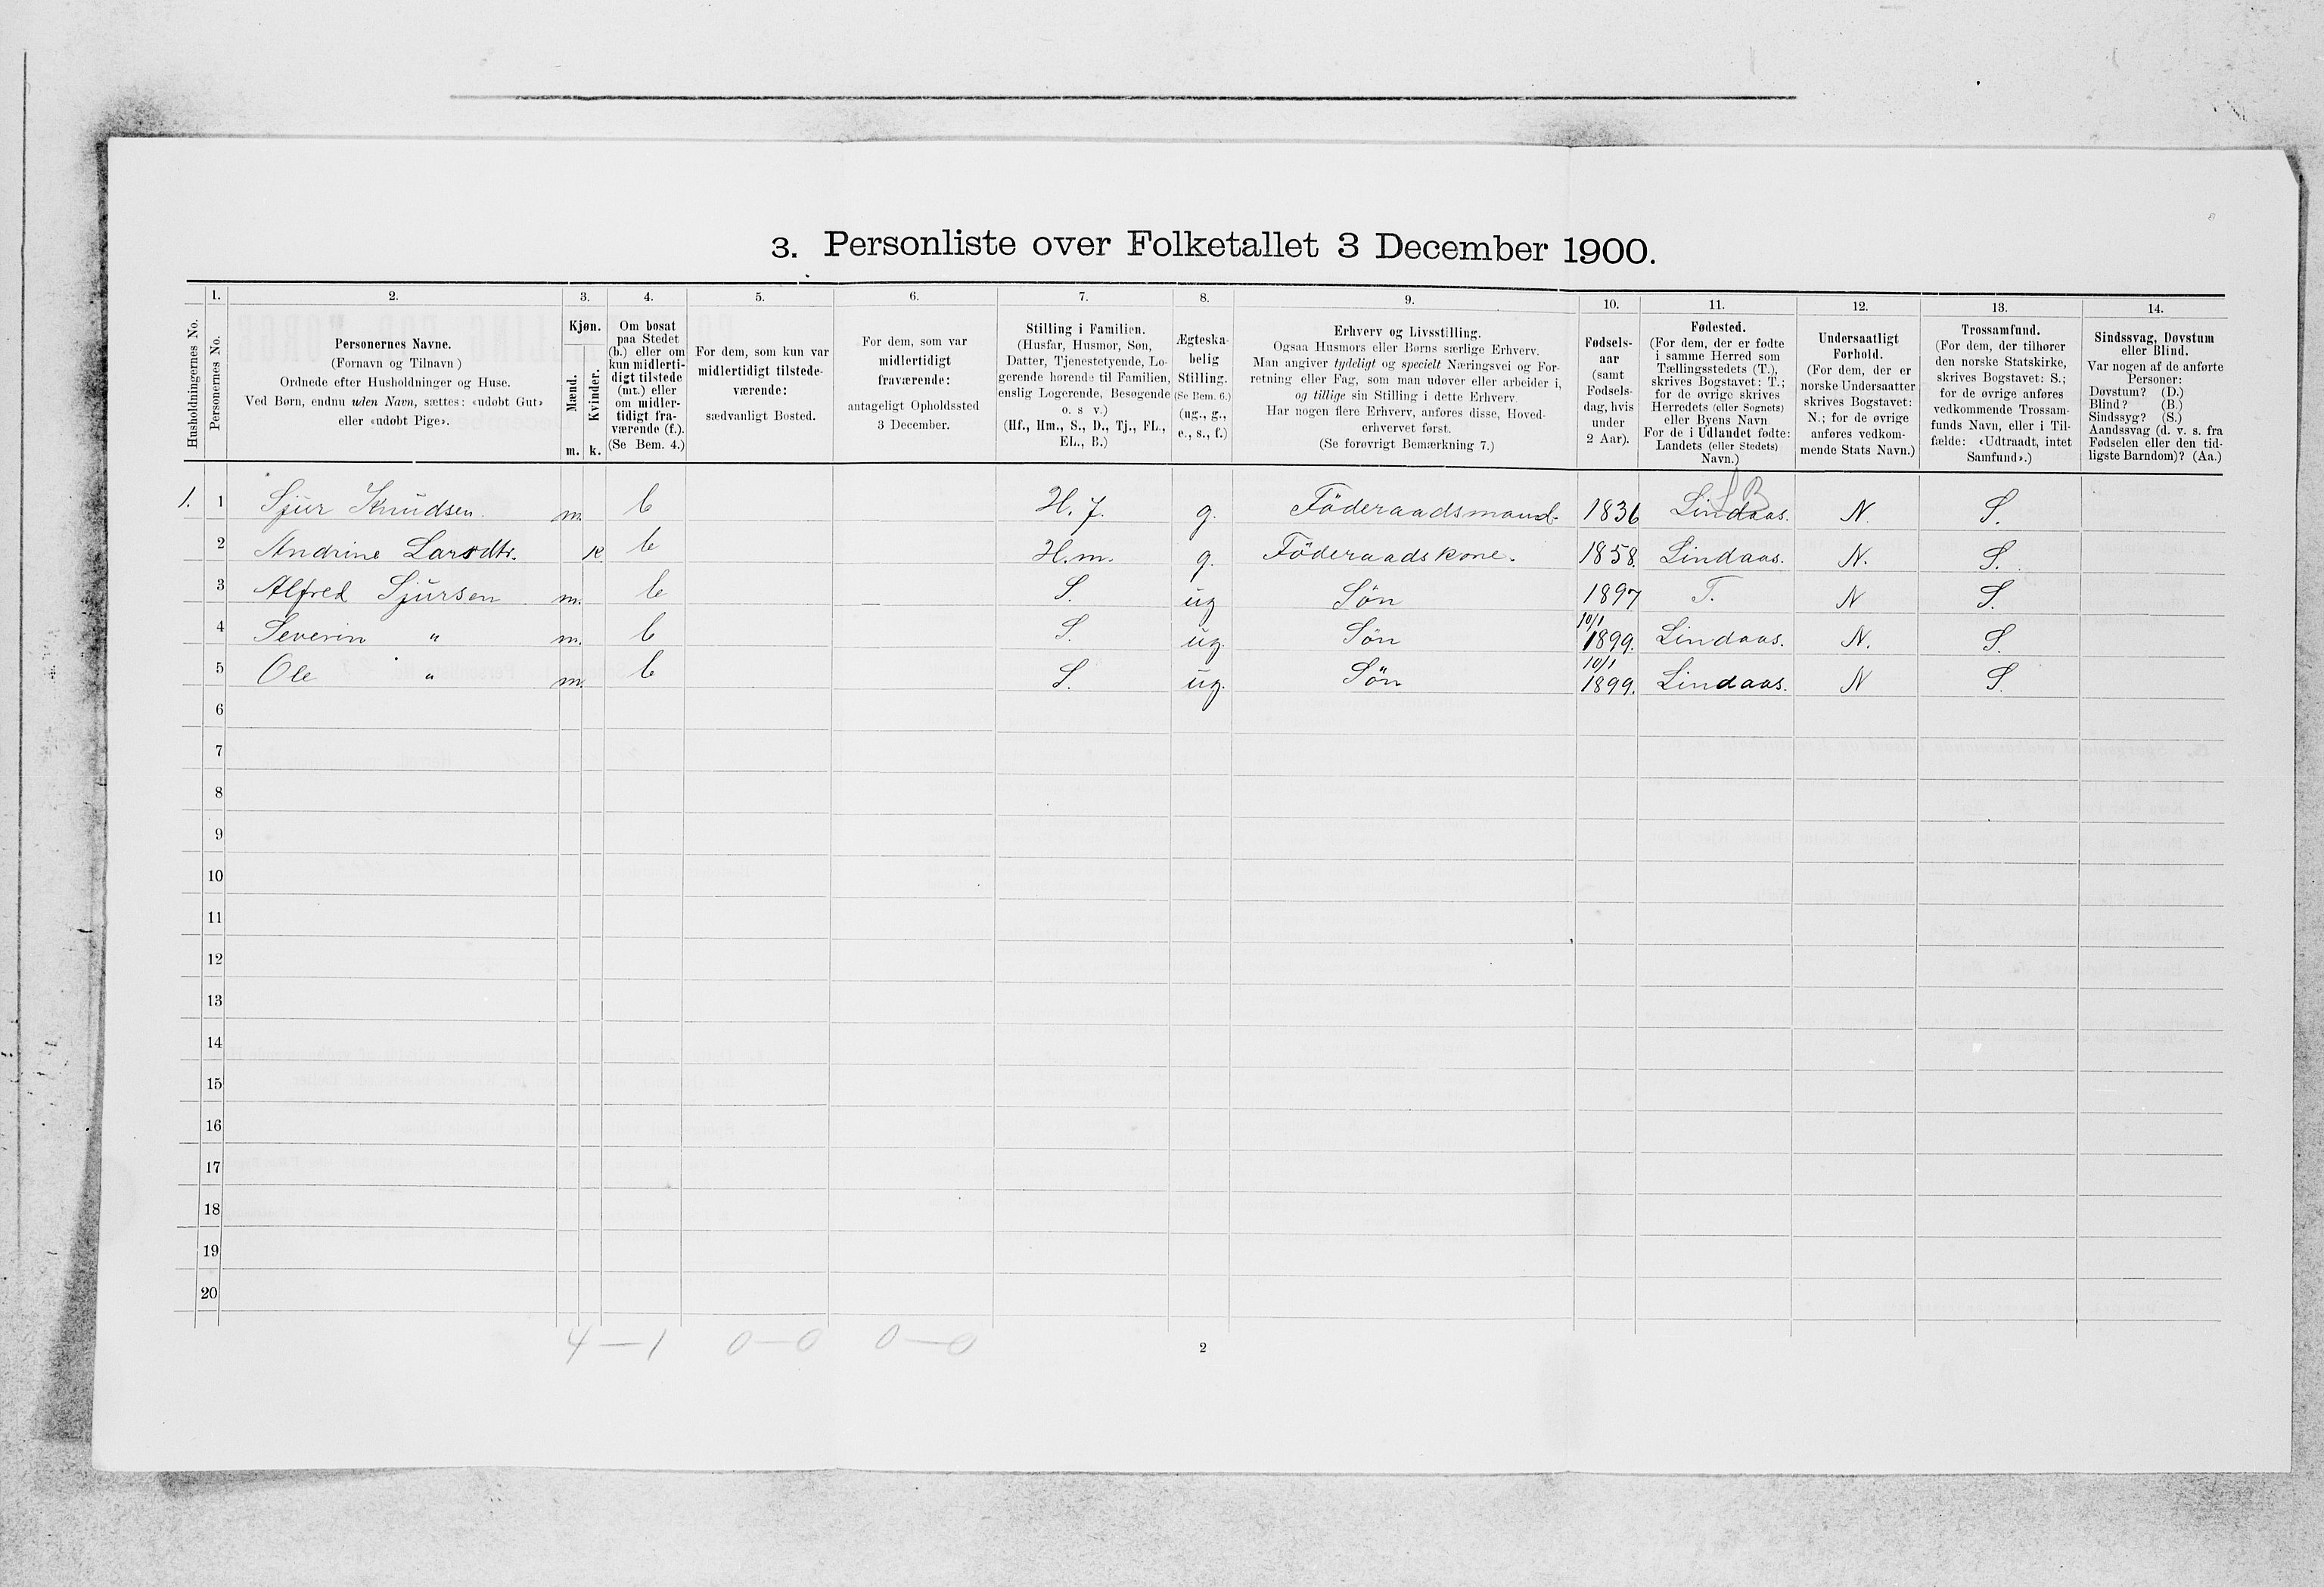 3. Personliste over Folketallet 3 December 1900.
1. 2. 3. 4. 5. 6. 7. 8. 9. 10. 11. 12. 13. 14.
Husholdningernes No.
Personernes No.
Personernes Navne.
(Fornavn og Tilnavn)
Ordnede efter Husholdninger og Huse.
Ved Børn, endnu uden Navn, sættes: «udøbt Gut»
eller «udøbt Pige».
Kjøn.
Mænd.
Kvinder.
m. k.
Om bosat
paa Stedet
(b.) eller om
kun midlerti-
digt tilstede
(mt.) eller
om midler-
tidigt fra-
værende (f.).
(Se Bem. 4.)
For dem, som kun var
midlertidigt tilstede-
værende:
sædvanligt Bosted.
For dem, som var
midlertidigt
fraværende:
antageligt Opholdssted
3 December.
Stilling i Familien.
(Husfar, Husmor, Søn,
Datter, Tjenestetyende, Lo-
gerende hørende til Familien,
enslig Logerende, Besøgende
o. s. v.)
(Hf., Hm., S., D., Tj., FL.,
EL., B.)
Ægteska-
belig
Stilling.
(Se Bem. 6.)
(ug., g.,
e., s., f.)
Erhverv og Livsstilling.
Ogsaa Husmors eller Børns særlige Erhverv.
Man angiver tydeligt og specielt Næringsvei og For-
retning eller Fag, som man udøver eller arbeider i,
og tillige sin Stilling i dette Erhverv.
Har nogen flere Erhverv, anføres disse, Hoved-
erhvervet først.
(Se forøvrigt Bemærkning 7.)
Fødsels-
aar
(samt
Fødsels-
dag, hvis
under
2 Aar).
Fødested.
(For dem, der er fødte
i samme Herred som
Tællingsstedets (T.),
skrives Bogstavet: T.;
for de øvrige skrives
Herredets (eller Sognets)
eller Byens Navn
For de i Udlandet fødte:
Landets (eller Stedets)
Navn.)
Undersaatligt
Forhold.
(For dem, der er
norske Undersaatter
skrives Bogstavet:
N.; for de øvrige
anføres vedkom-
mende Stats Navn.)
Trossamfund.
(For dem, der tilhører
den norske Statskirke,
skrives Bogstavet: S.;
for de øvrige anføres
vedkommende Trossam-
funds Navn, eller i Til-
fælde: «Udtraadt, intet
Samfund».)
Sindssvag, Døvstum
eller Blind.
Var nogen af de anførte
Personer:
Døvstum? (D.)
Blind? (B.)
Sindssyg? (S.)
Aandssvag (d. v. s. fra
Fødselen eller den tid-
ligste Barndom)? (Aa.)
1. 1 Sjur Knudsen. m. b H. f. g. Föderaadsmand. 1836 Lindaas. N. S.
2 Andrine Larsdtr. k b H.m. g. Föderaadskone. 1858. Lindaas. N. S.
3 Alfred Sjursen m. b S. ug Sön 1897 T. N S.
4 Severin " m. b S. ug. Sön 10/1 1899. Lindaas. N. S.
5 Ole " m. b S. ug. Sön 10/1 1899. Lindaas. N S.
6
7
8
9
10
11
12
13
14
15
16
17
18
19
20
4 — 1 0 — 0 0 — 0
2